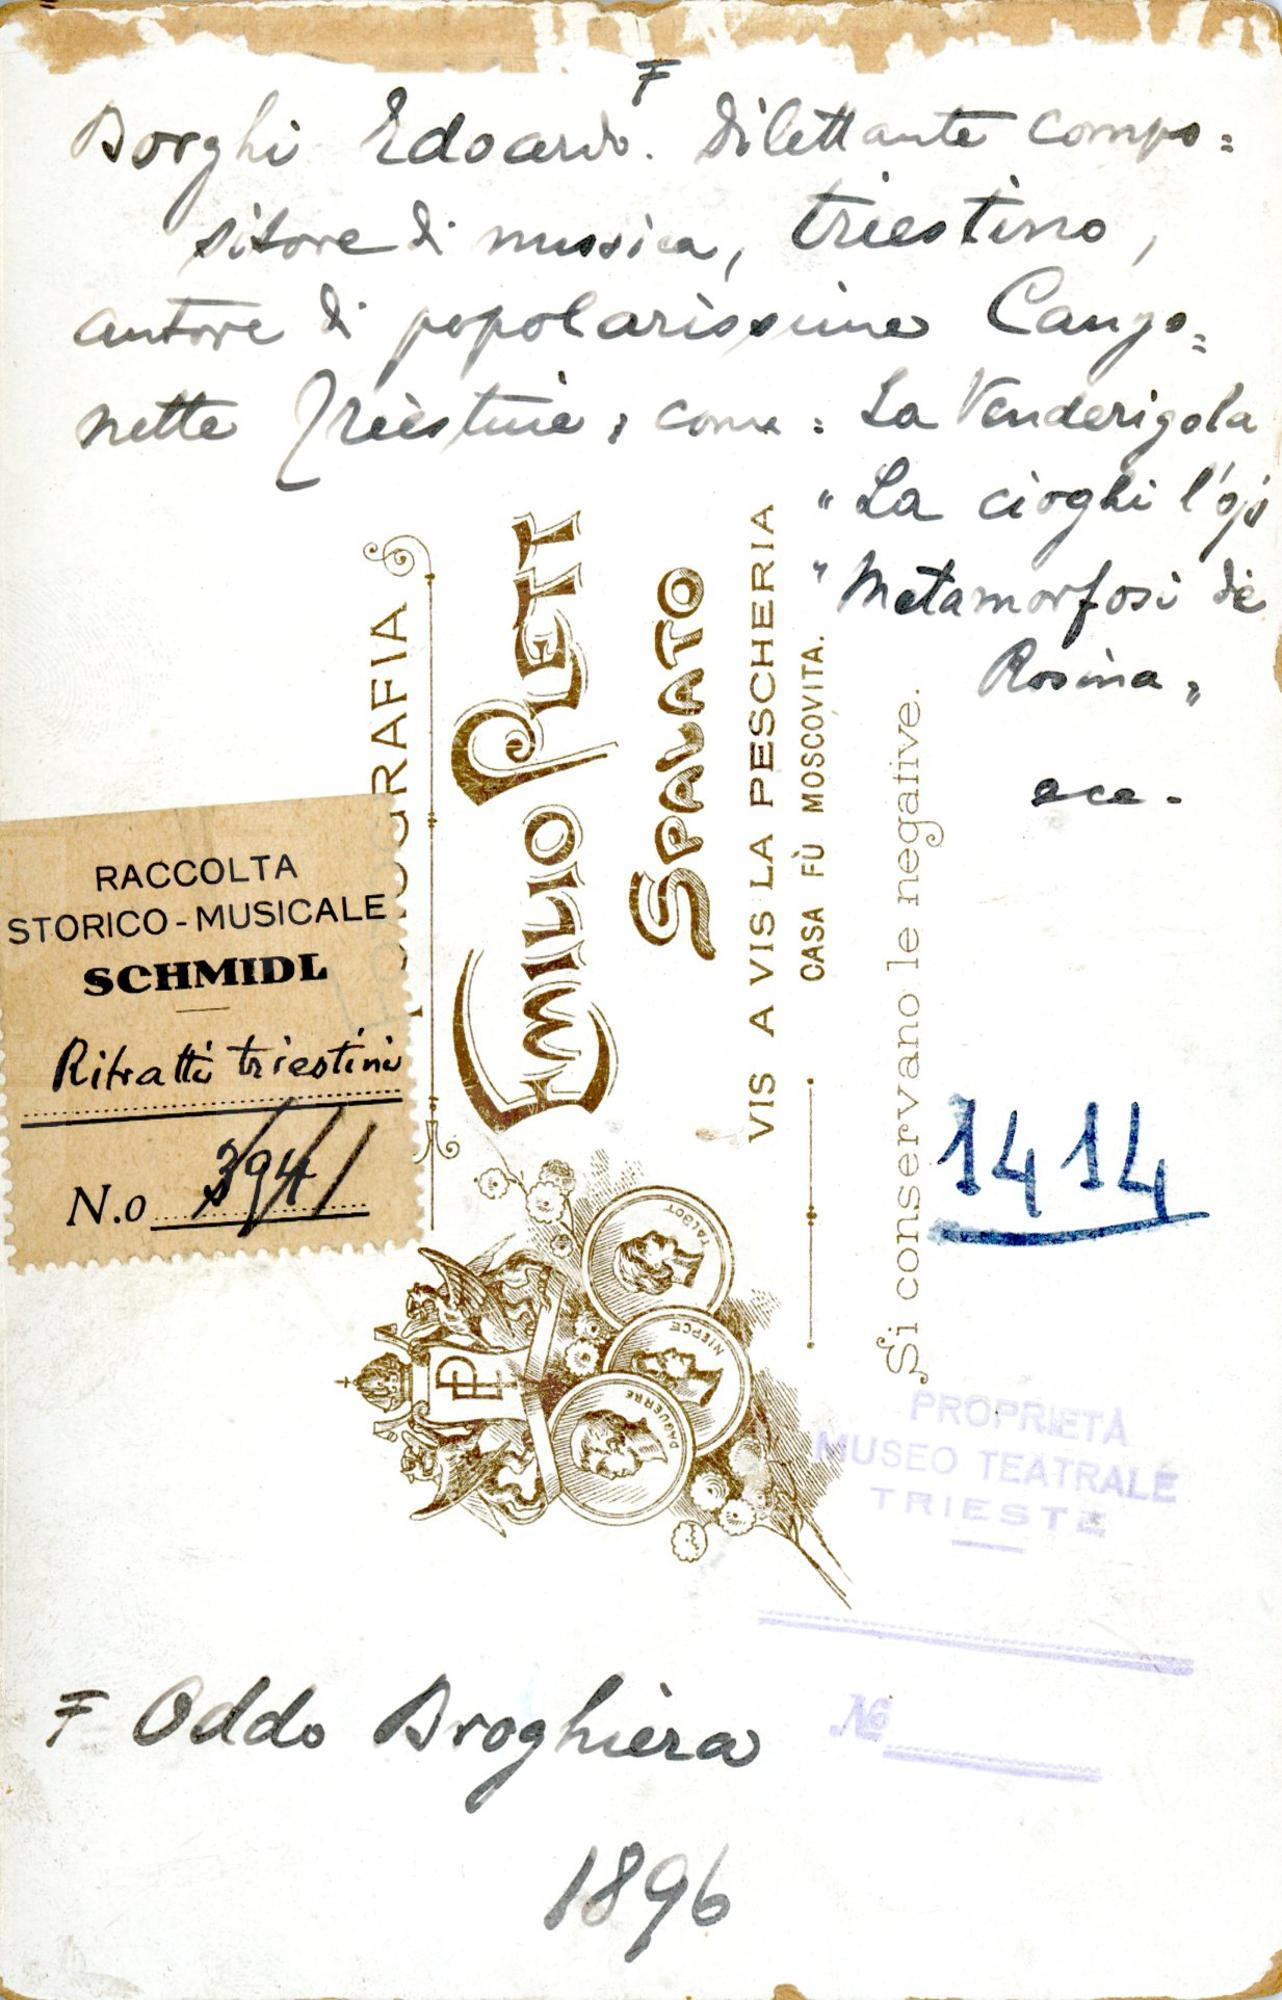 F
Borghi Edoardo. Dilettante compo=
sitore di musica, triestino,
autore di popolarissime Canzo=
nette Triestine, come: La Venderigola
" La cioghi l'
" Metamorfosi de
Rosina "
ecc.
FOTOGRAFIA
EMILIO PLETT
SPALATO
VIS A VIS LA PESCHERIA
CASA FÙ MOSCOVITA.
Si conservano le negative.
RACCOLTA
STORICO-MUSICALE
SCHMIDL
Ritratti triestini
N.o 394/1
1414
TALBOT
NIEPCE
DAGUERRE
PL
PROPRIETÀ
MUSEO TEATRALE
TRIESTE
No
F Oddo Broghiera
1896